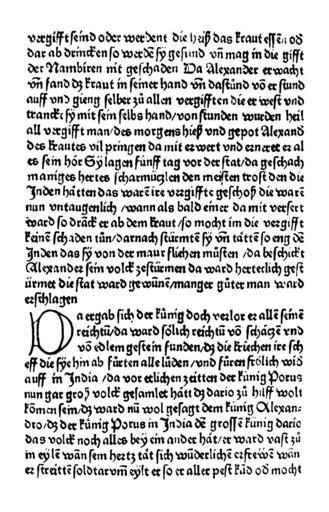 vergifft seind oder werdent die heiß das kraut essen od
dar ab drincken so werdē sy gesund vn̄ mag in die gifft
der Nambiren nit geschaden Da Alexander erwacht
vn̄ fand dz kraut in seiner hand vn̄ dastund vō er stund
auff vnd gieng selber zů allen vergifften die er west vnd
tranckt sy mit sein selbs hand / von stunden wurden heil
all vergifft man / des morgens hieß vnd gepot Alexand
des krautes vil pringen da mit er wert vnd ernert er al
es sein hör Sy lagen fünff tag vor der stat / da geschach
maniges hertes scharmützlen den meisten trost den die
Inden hatten das warē ire vergifft geschoß die warē
nun vntaugenlich / wann als bald einer da mit versert
ward so drāck er ab dem kraut / so mocht im die vergifft
keinē schaden tůn / darnach stürmtē sy vn̄ tattē so eng dē
Inden das sy von der maur fliehen můsten / da beschickt
Alexander sein volck zestürmen da ward herterlich gest
ürmet die stat ward gewūnē / manger gůter man ward
erschlagen
Da ergab sich der künig doch verlor er all seinē
reichtū / da ward sölich reichtū vō schätzē vnd
von edlem gestein funden / dz die kriechen ire sch
eff die sy hin ab fürten alle lůden / vnd fůren frölich wid
auff in India / da vor etlichen zeitten der künig Porus
nun gar groß volck gesamlet hatt dz dario zů hilff wolt
kōmen sein / dz ward nū wol gesagt dem künig Alexan-
dro / dz der künig Porus in India dē grossē künig dario
das volck noch alles bey ein ander hāt / er ward vast zů
in eylē wān sein hertz tāt sich wūderlichē erfrewē wān
er streittē soldt darum̄ eylt er so er aller pest kūd od mocht